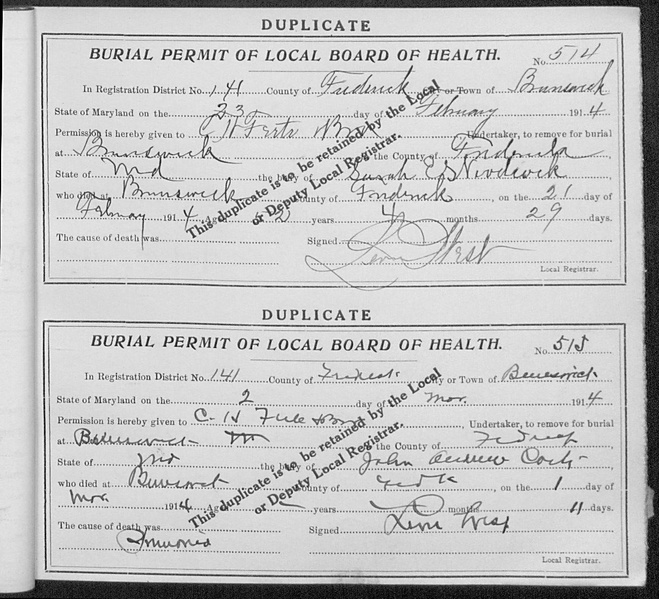 DUPLICATE
BURIAL PERMIT OF LOCAL BOARD OF HEALTH.
No. 514
In Registration District No. 141 County of Frederick City or Town of Brunswick
State of Maryland on the 23 day of February 1914
Permission is hereby given to C H & Bro Undertaker, to remove for burial
at Brunswick in the County of Frederick
State of Md the body of Sarah E
who died at Brunswick County of Frederick, on the 21 day of
February 1914 Aged 2 years 4 months 29 days.
The cause of death was Signed
Levin West
Local Registrar.
This duplicate is to be retained by the Local
or Deputy Local Registrar.
DUPLICATE
BURIAL PERMIT OF LOCAL BOARD OF HEALTH.
No. 515
In Registration District No. 141 County of City or Town of Brunswick
State of Maryland on the 2 day of Mar. 1914
Permission is hereby given to C. H & Bro Undertaker, to remove for burial
at Brunswick in the County of
State of Md the body of John Andrew
who died at County of Fredk, on the 1 day of
Mar 1914 Aged years months 11 days.
The cause of death was Signed Levin West
Local Registrar.
This duplicate is to be retained by the Local
or Deputy Local Registrar.